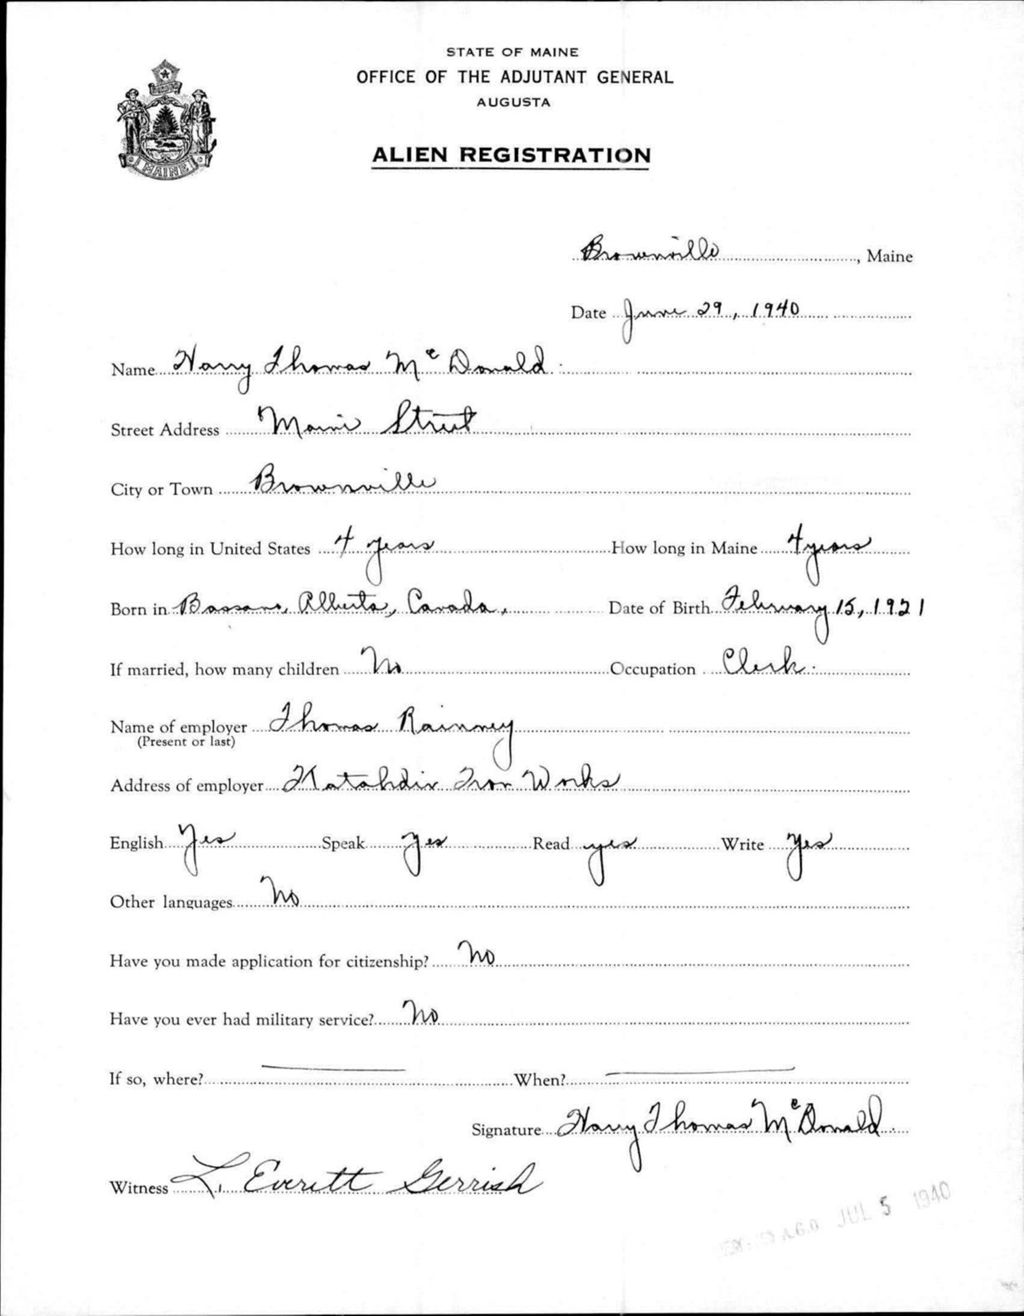 STATE OF MAINE
OFFICE OF THE ADJUTANT GENERAL
AUGUSTA
ALIEN REGISTRATION
MAINE
Brownville, Maine
Date June 29, 1940
Name Harry Thomas McDonald
Street Address Main Street
City or Town Brownville
How long in United States 4 years How long in Maine 4 years
Born in Bassano, Alberta, Canada. Date of Birth February 15, 1921
If married, how many children No Occupation Clerk.
Name of employer Thomas Rainney
(Present or last)
Address of employer Katahdin Iron Works
English Yes Speak Yes Read yes Write Yes
Other languages No
Have you made application for citizenship? No
Have you ever had military service? No
If so, where? When?
Signature Harry Thomas McDonald
Witness L. Everett Gerrish
A.G.O JUL 5 1940